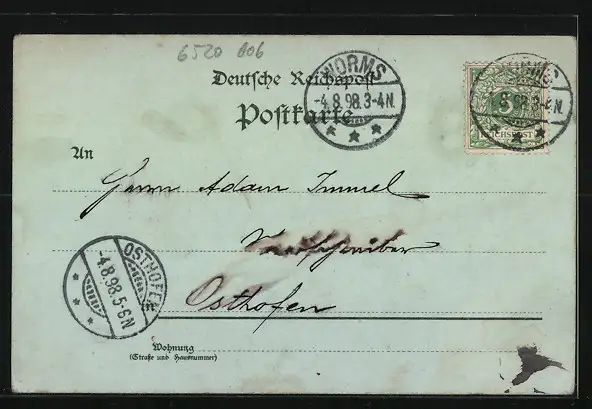 6520 B06
Deutsche Reichspost
Postkarte
WORMS
-4.8.98.3-4N.
5
REICHSPOST
An
Herrn Adam Immel
Osthofen
in
OSTHOFEN
-4.8.98.5-6N
Wohnung
(Straße und Hausnummer)